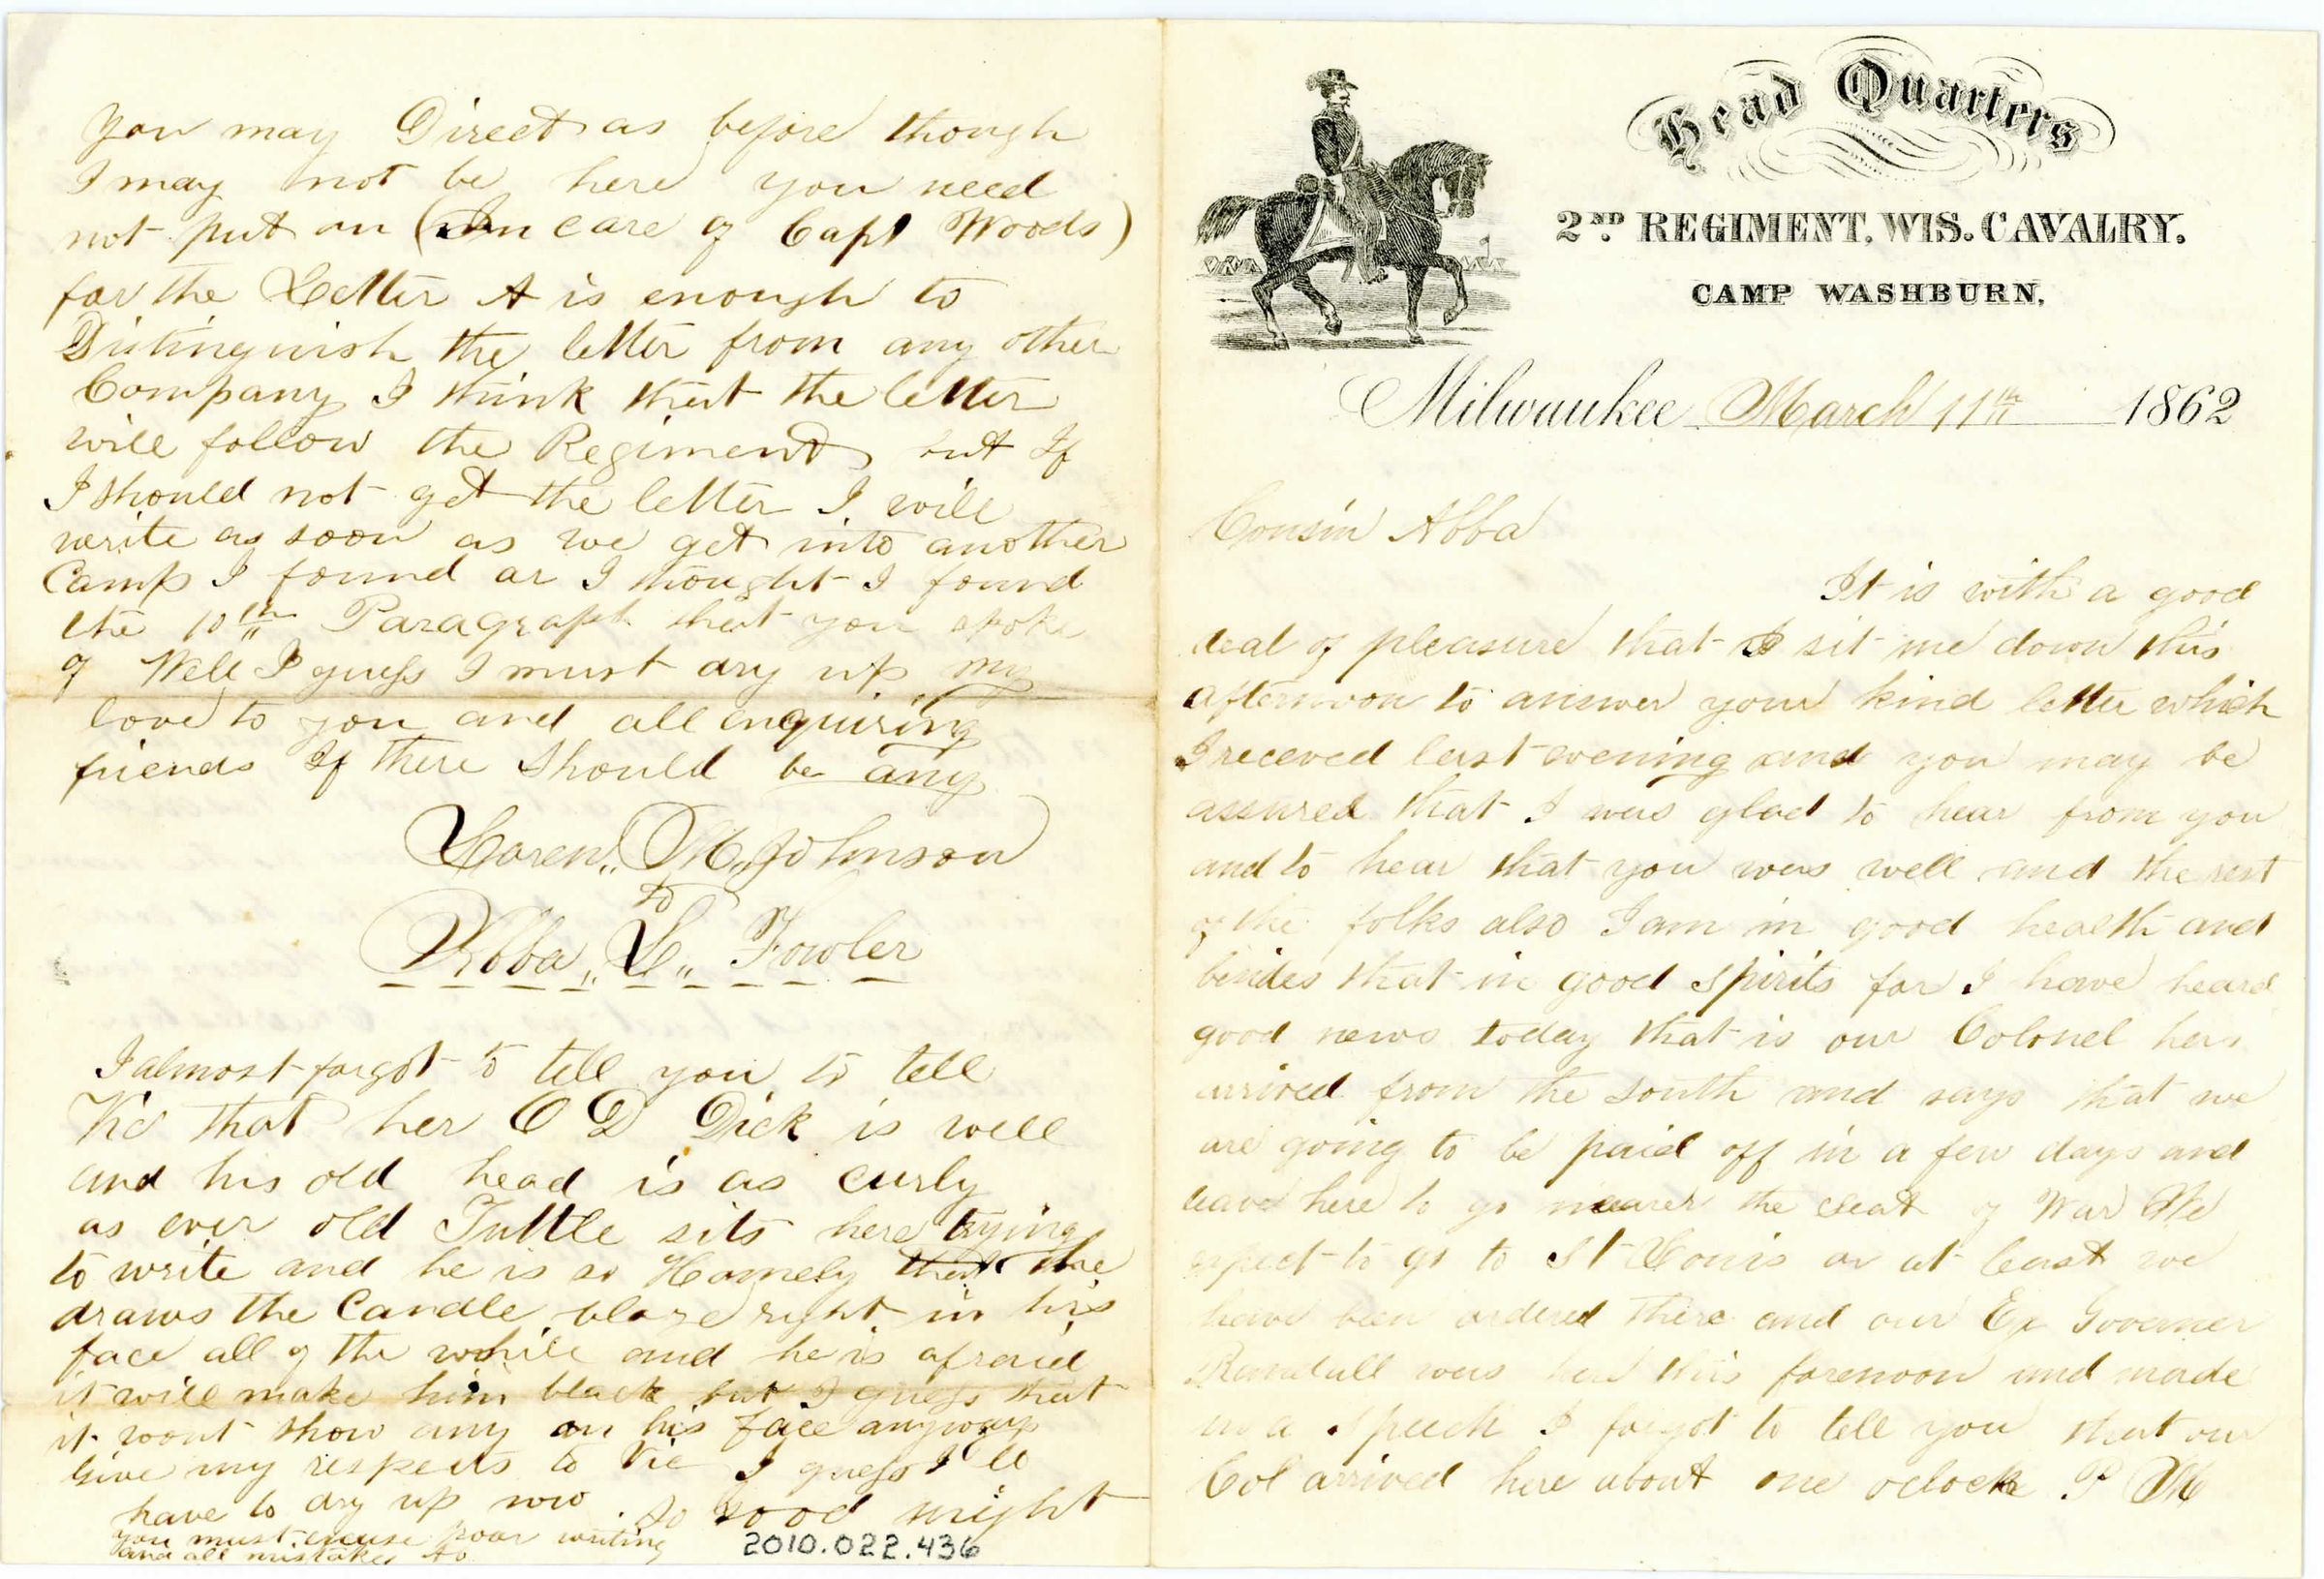 Head Quarters
2ND REGIMENT, WIS. CAVALRY.
CAMP WASHBURN,
Milwaukee March 11th 1862
Cousin Abba
It is with a good
deal of pleasure that I sit me down this
afternoon to answer your kind letter which
I receved last evening and you may be
assured that I was glad to hear from you
and to hear that you was well and the rest
of the folks also I am in good health and
besides that in good spirits for I have heard
good news today that is our Colonel has
arrived from the South and says that we
are going to be paid off in a few days and
leave here to go nearer the seat of War We
expect to go to St Louis or at least we
have been ordered there and our Ex Governer
Randall was here this forenoon and made
us a speech I forgot to tell you that our
Col arrived here about one oclock P M
You may Direct as before though
I may not be here you need
not put on (In care of Capt Woods)
for the Letter A is enough to
Distinguish the letter from any other
Company I think that the letter
will follow the Regiment but If
I should not get the letter I will
write as soon as we get into another
Camp I found or I thought I found
the 10th Paragraph that you spoke
of Well I guess I must dry up my
love to you and all enquiring
friends If there should be any
Loren,, M,, Johnson
to
Abba,, L,, Fowler
I almost forgot to tell you to tell
Vic that her O D Dick is well
and his old head is as curly
as ever old Tuttle sits here trying
to write and he is so Homely that he
draws the Candle blaze right in his
face all of the while and he is afraid
it will make him black but I guess that
it wont show any on his face anyways
Give my respects to Vic I guess I'll
have to dry up now. So Good night
you must excuse poor writing
and all mistakes to
2010.022.436